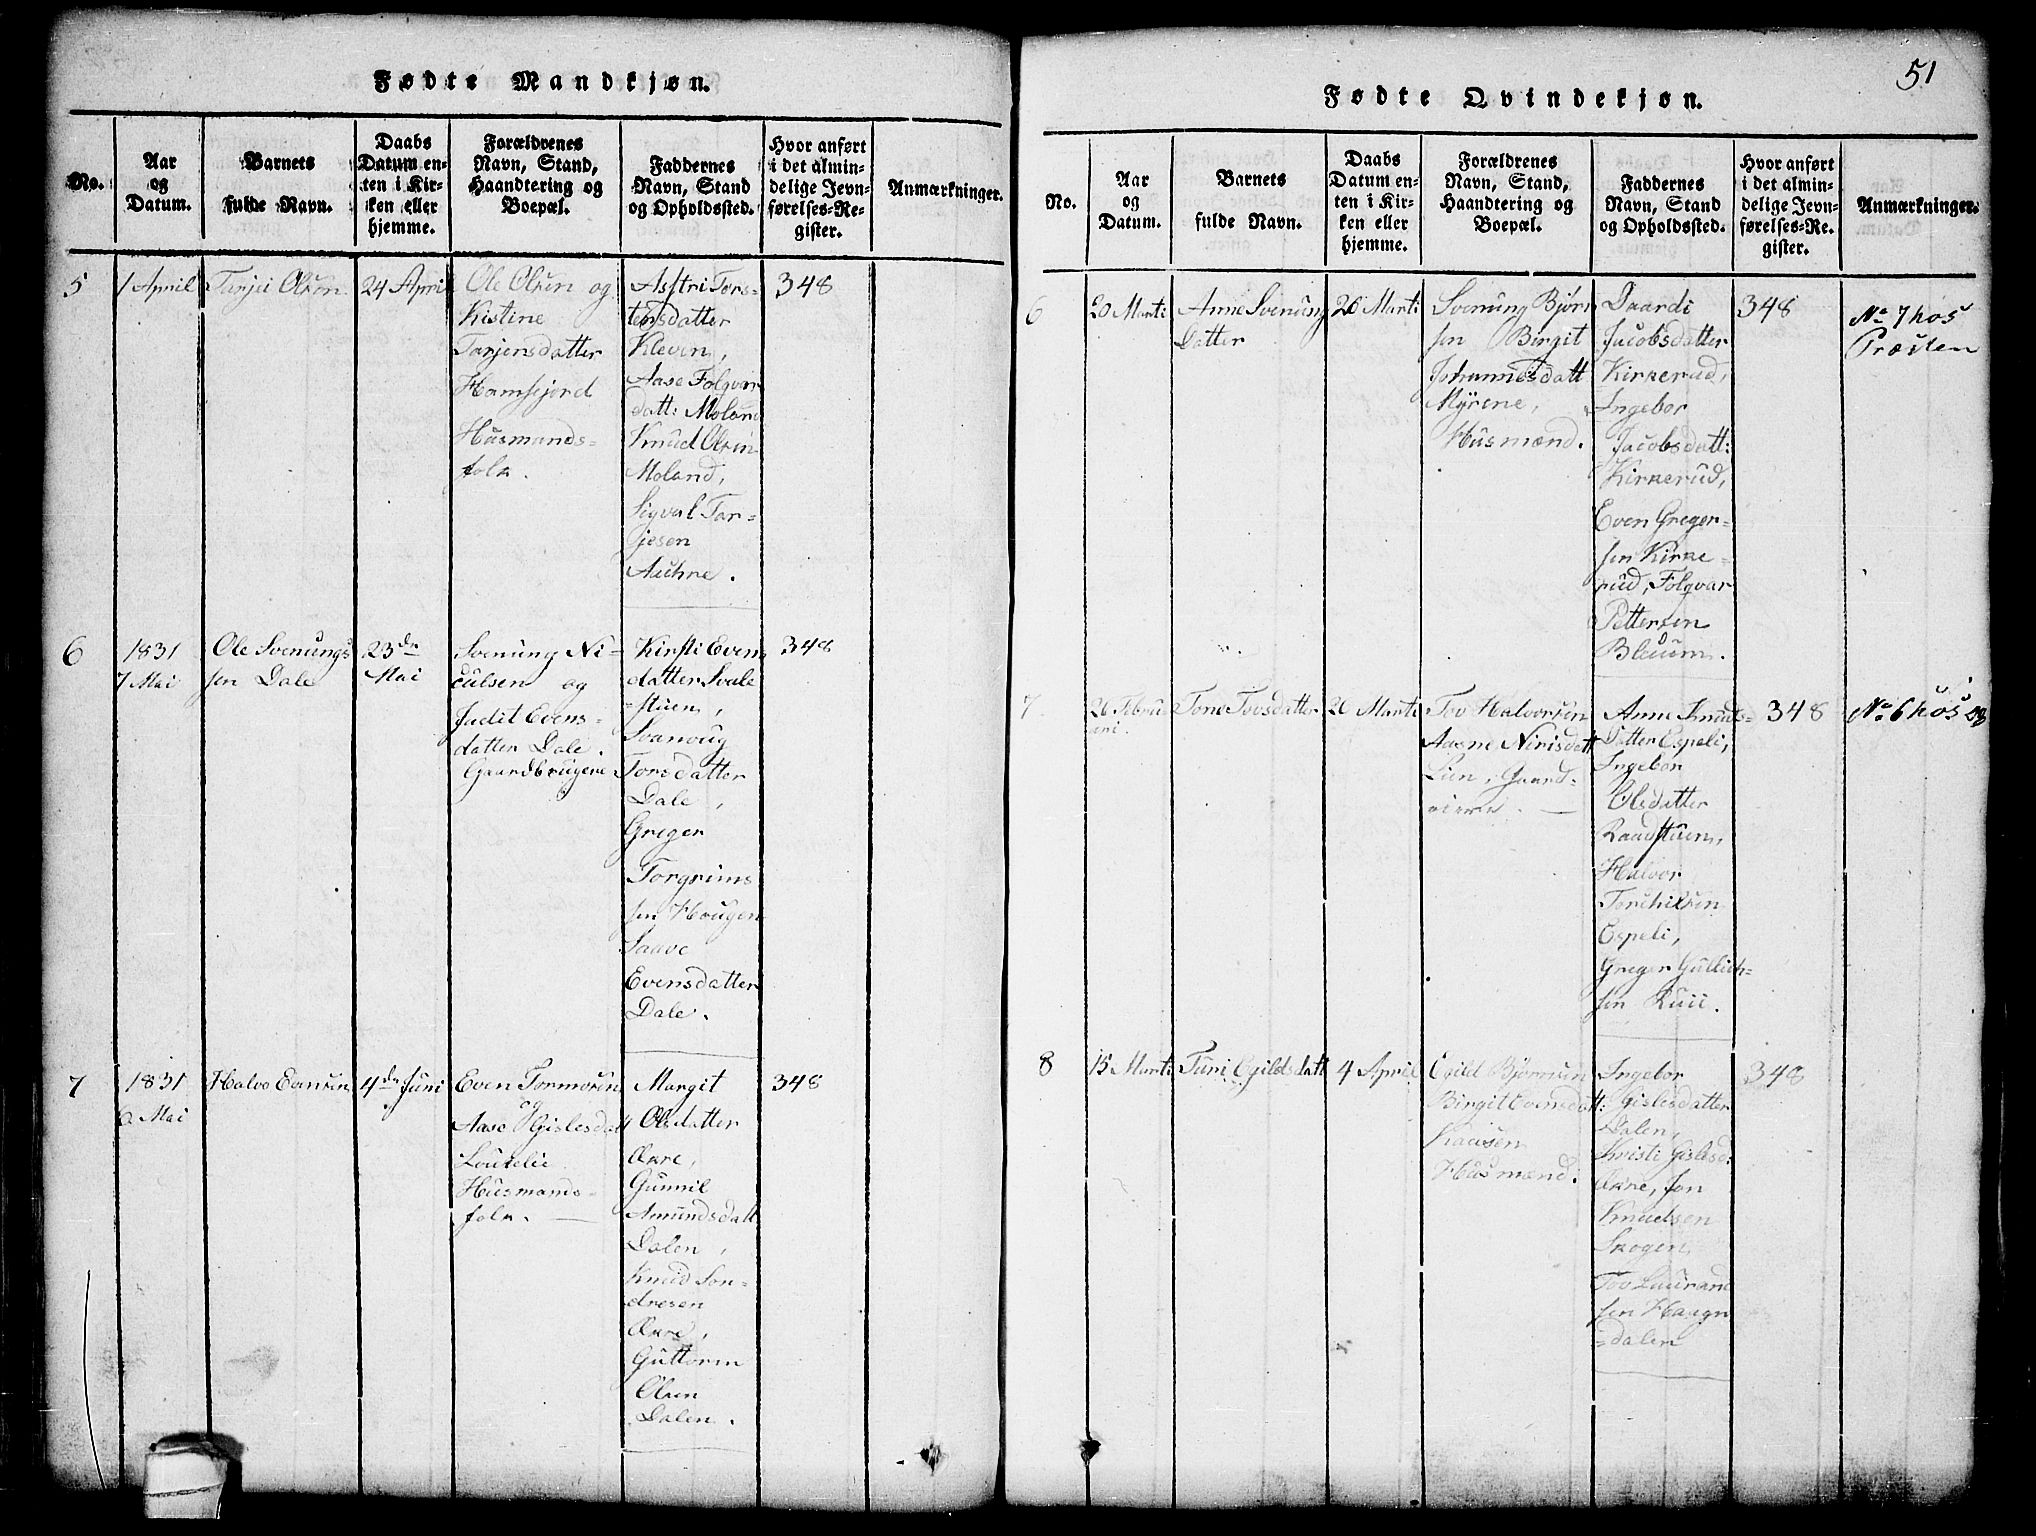 Fødte Mandkjøn.
No.
Aar
og
Datum.
Barnets
fulde Navn.
Daabs
Datum en-
ten i Kir-
ken eller
hjemme.
Forældrenes
Navn, Stand,
Haandtering og
Boepæl.
Faddernes
Navn, Stand
og Opholdssted.
Hvor anført
i det almin-
delige Jevn-
førelses-Re-
gister.
Anmærkninger.
5
1 April
Tarjei Olsøn
24 April
Ole Olsen og
Kistine
Tarjensdatter
Hamsejord
Husmands-
folk.
Astri Tors-
tensdatter
Kleven,
Aase Folqvar
datt: Moland
Knud Olsen
Moland,
Sigval Tar-
jesen
348
6
1831
7 Mai
Ole Svenungs
sen Dale
23de
Mai
Svenung Ni-
culsen og
Judit Evens-
datter Dale.
Gaardbrugere
Kirsti Evens
datter Svale
stuen,
Torsdatter
Dale,
Greger
Torgrims
sen Hougen
Evensdatter
Dale.
348
7
1831
6 Mai
Halvo Evensen
4de Juni
Even Tormosen
og
Aase Gislesdatt
Husmands-
folk.
Margit
Olsdatter
Økre,
Gunnil
Amundsdatt
Dalen,
Knud Son-
dresen
Økre,
Guttorm
Olsen
Dalen.
348
51
Fødte Qvindekjøn.
No.
Aar
og
Datum.
Barnets
fulde Navn.
Daabs
Datum en-
ten i Kir-
ken eller
hjemme.
Forældrenes
Navn, Stand,
Haandtering og
Boepæl.
Faddernes
Navn, Stand
og Opholdssted.
Hvor anført
i det almin-
delige Jevn-
førelses-Re-
gister.
Anmærkninger.
6
20 Marti
Anne Svenung
Datter
26 Marti
Svenung Bjørn
sen Birgit
Johannesdatt
Myrene,
Husmænd.
Daardi
Jacobsdatter
Kirkerud,
Ingebor
Jacobsdatt:
Kirkerud,
Even Greger-
sen Kirke-
rud, Folqvar
Pettersen
348
No 7 hos
Præsten
7
26 Febru
ari.
Tone Tovsdatter
26 Marti
Tov Halvorsen
Aasne Nirisdatt
Lien, Gaard-
Anne Knuds-
datter Espeli,
Ingebor
Olsdatter
Raudstuen,
Halvor
Torchilsen
Espeli,
Greger Gullich-
sen
348
No 6 hos
8
15 Marti
Turi Egildsdatt
4 April
Egild Bjørnsen
Birgit Evensdatt:
Husmænd.
Ingebor
Gislesdatter
Dalen,
Kristi Gislesd:
Økre, Jon
Knudsen
Skogen
Tov Laurand
sen Haugn
=dalen
348